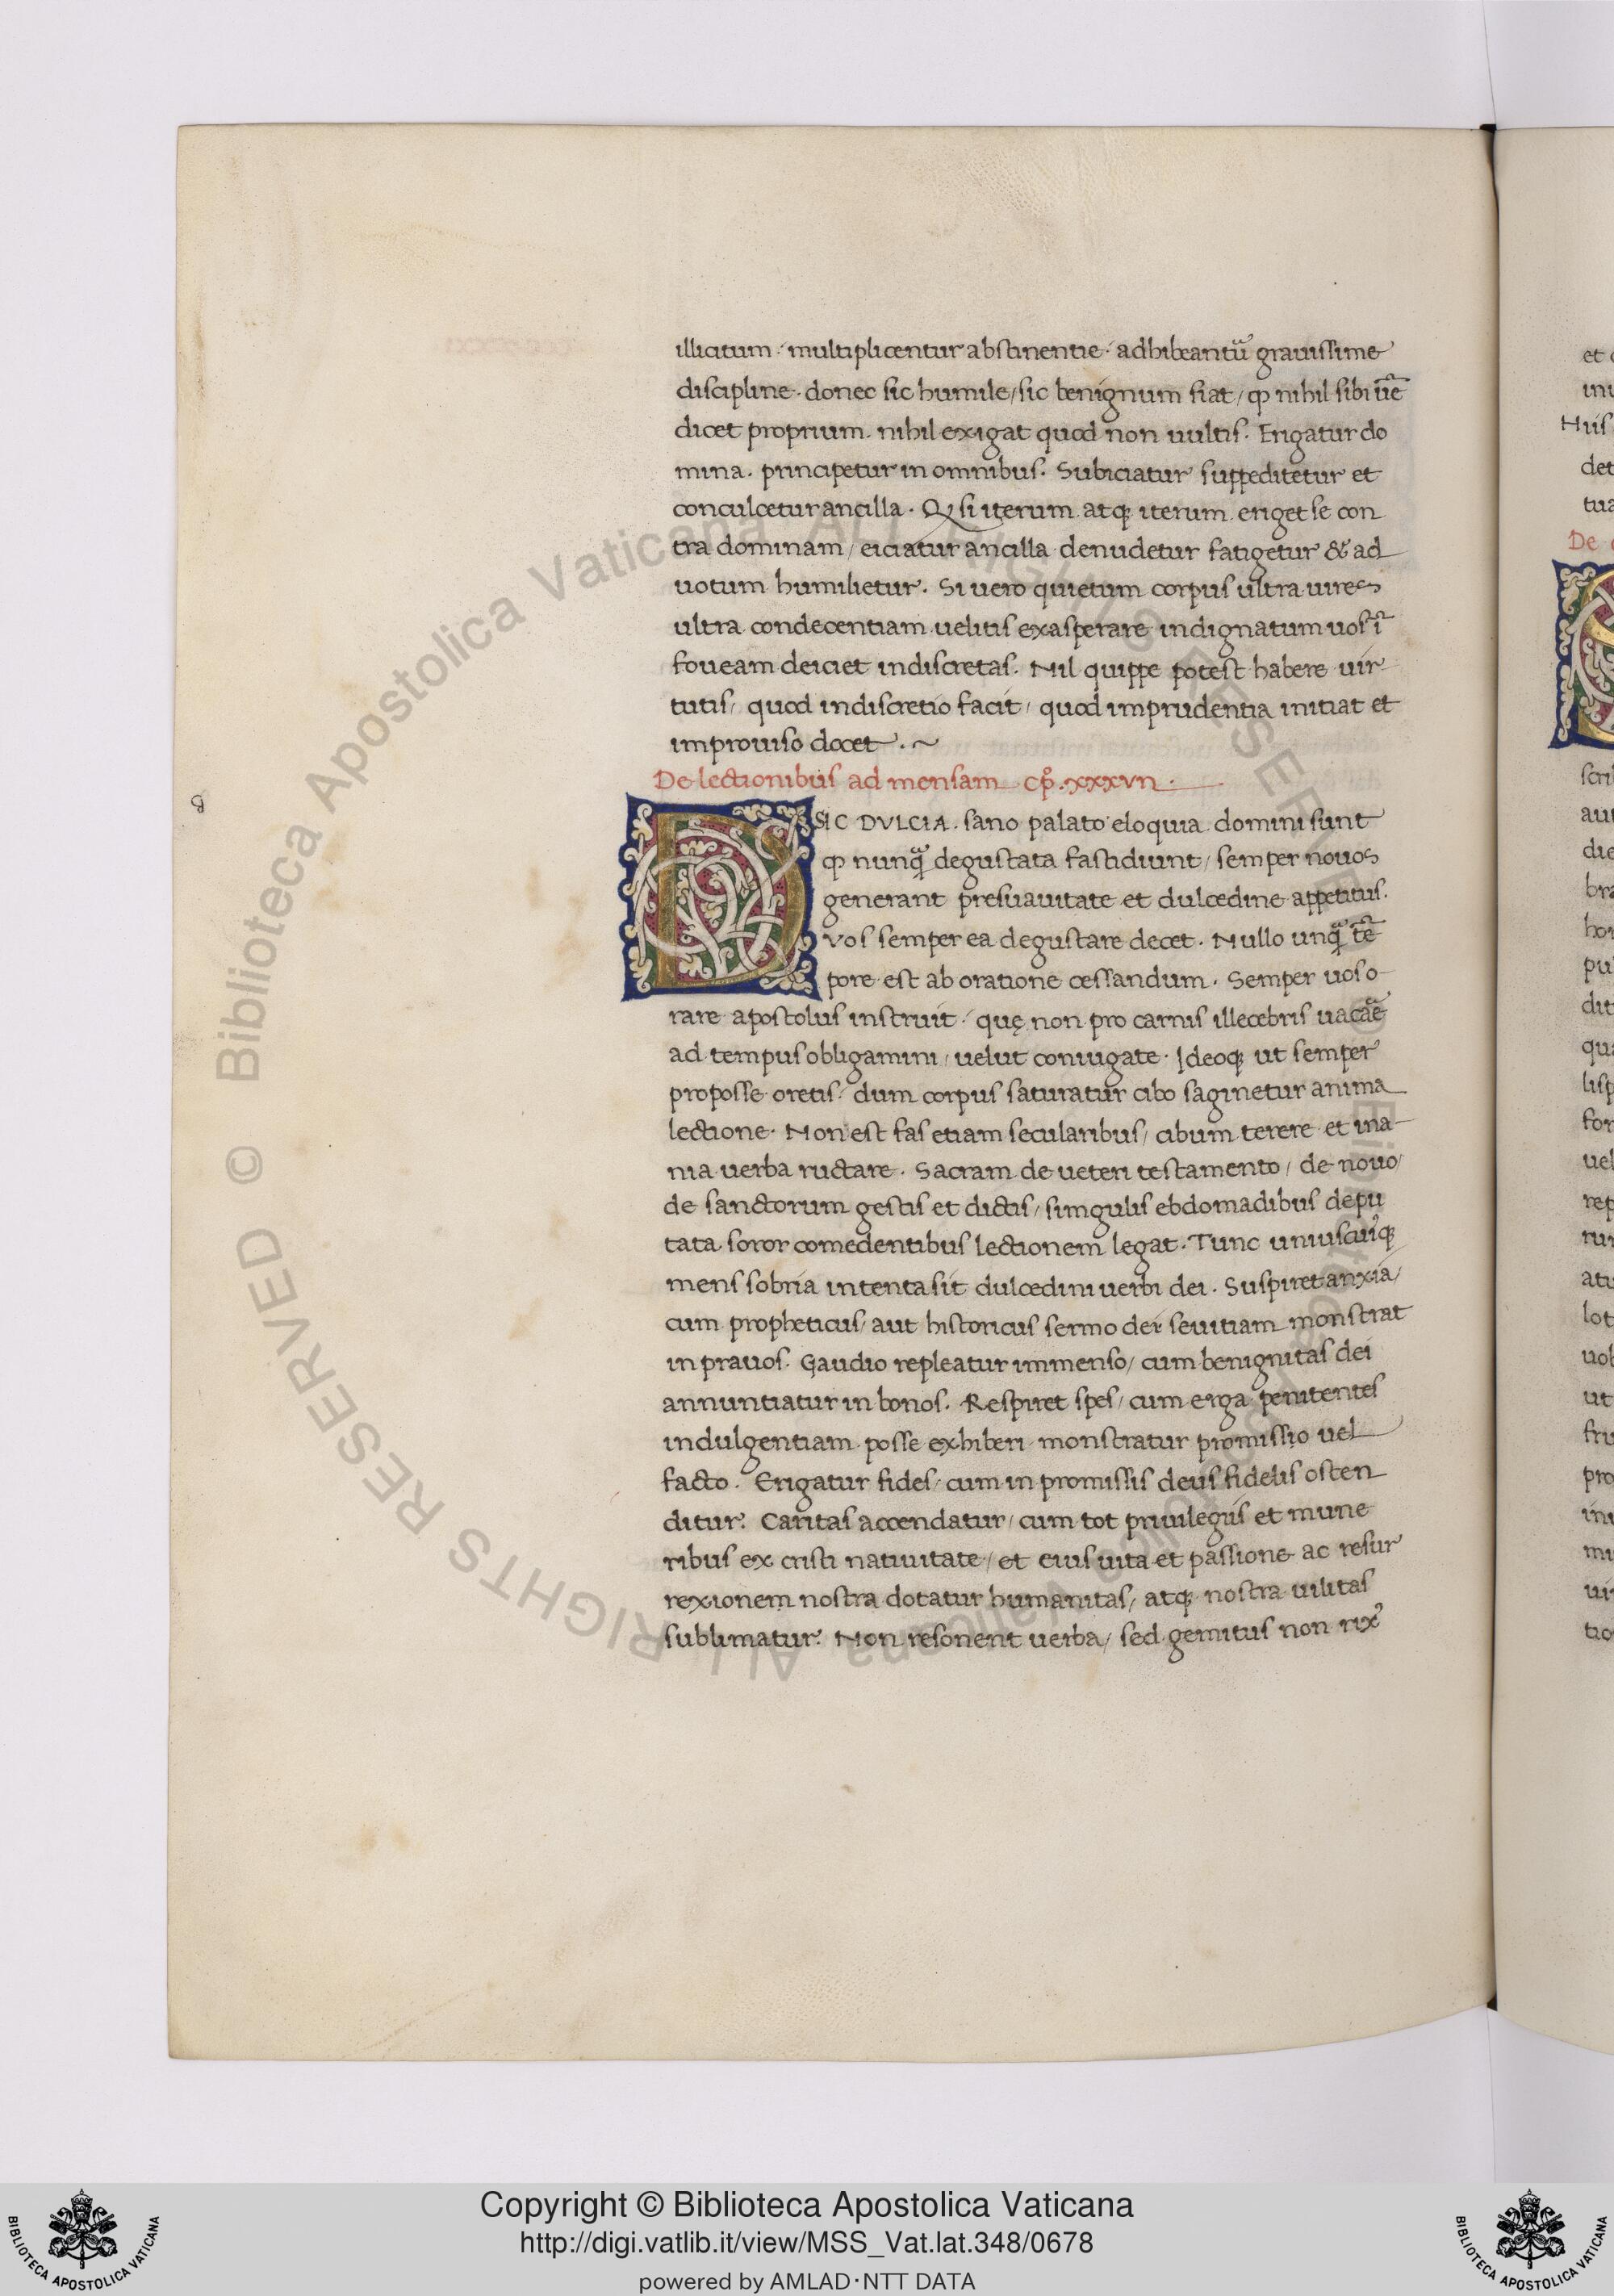 illicitum · multiplicentur abstinentie · adhibeantur̄ grauissime
discipline · donec sic humile / sic benignum fiat / ꝙ nihil sibi uē
dicet proprium · nihil exigat quod non uultis · Erigatur do
mina · principetur in omnibus · Subiciatur suppeditetur et
conculcetur ancilla · Qͥ si iterum atqꝫ iterum eriget se con
tra dominam / eiciatur ancilla denudetur fatigetur & ad
uotum humilietur · Si uero quietum corpus ultra uires
ultra condecentiam uelitis exasperare indignatum uos ī
foueam deiciet indiscretas · Nil quippe potest habere uir
tutis / quod indiscretio facit / quod imprudentia initiat et
improuiso docet · ~
De lectionibus ad mensam cp̊ · xxxvii ·
SIC DVLCIA · sano palato eloquia domini sunt
ꝙ nunq̄ degustata fastidiunt / semper nouos
generant presuauitate et dulcedine appetitus ·
vos semper ea degustare decet · Nullo unq̄ tē
pore est ab oratione cessandum · Semper uos o
rare apostolus instruit · quę non pro carnis illecebris uacāe
ad tempus obligamini / uelut coniugate · Ideoqꝫ ut semper
proposse oretis · dum corpus saturatur cibo saginetur anima
lectione · Non est fas etiam secularibus / cibum terere et ina
nia uerba ructare · Sacram de ueteri testamento / de nouo /
de sanctorum gestis et dictis / simgulis ebdomadibus depu
tata soror comedentibus lectionem legat · Tunc uniuscuiqꝫ
mens sobria intenta sit dulcedini uerbi dei · Suspiret anxia /
cum propheticus / aut historicus sermo dei seuitiam monstrat
in prauos · Gaudio repleatur immenso / cum benignitas dei
annuntiatur in bonos · Respiret spes / cum erga penitentes
indulgentiam posse exhiberi monstratur promissio uel
facto · Erigatur fides / cum in promissis deus fidelis osten
ditur · Caritas accendatur / cum tot priuilegiis et mune
ribus ex cristi natiuitate / et eius uita et passione ac resur
rexionem nostra dotatur humanitas / atqꝫ nostra uilitas
sublimatur · Non resonent uerba / sed gemitus non rix̄
et
inu
Huis
det
tua
De
scri
aut
die
bra
hor
pu
dit
qua
lisp
for
uel
rep
rur
atu
lot
uob
ut
fru
pro
inu
mu
uir
tio
© Biblioteca Apostolica Vaticana ALL RIGHTS RESERVED © Biblioteca Apostolica Vaticana ALL RIGHTS RESERVED
BIBLIOTECA APOSTOLICA VATICANA
Copyright © Biblioteca Apostolica Vaticana
http://digi.vatlib.it/view/MSS_Vat.lat.348/0678
powered by AMLAD·NTT DATA
BIBLIOTECA APOSTOLICA VATICANA